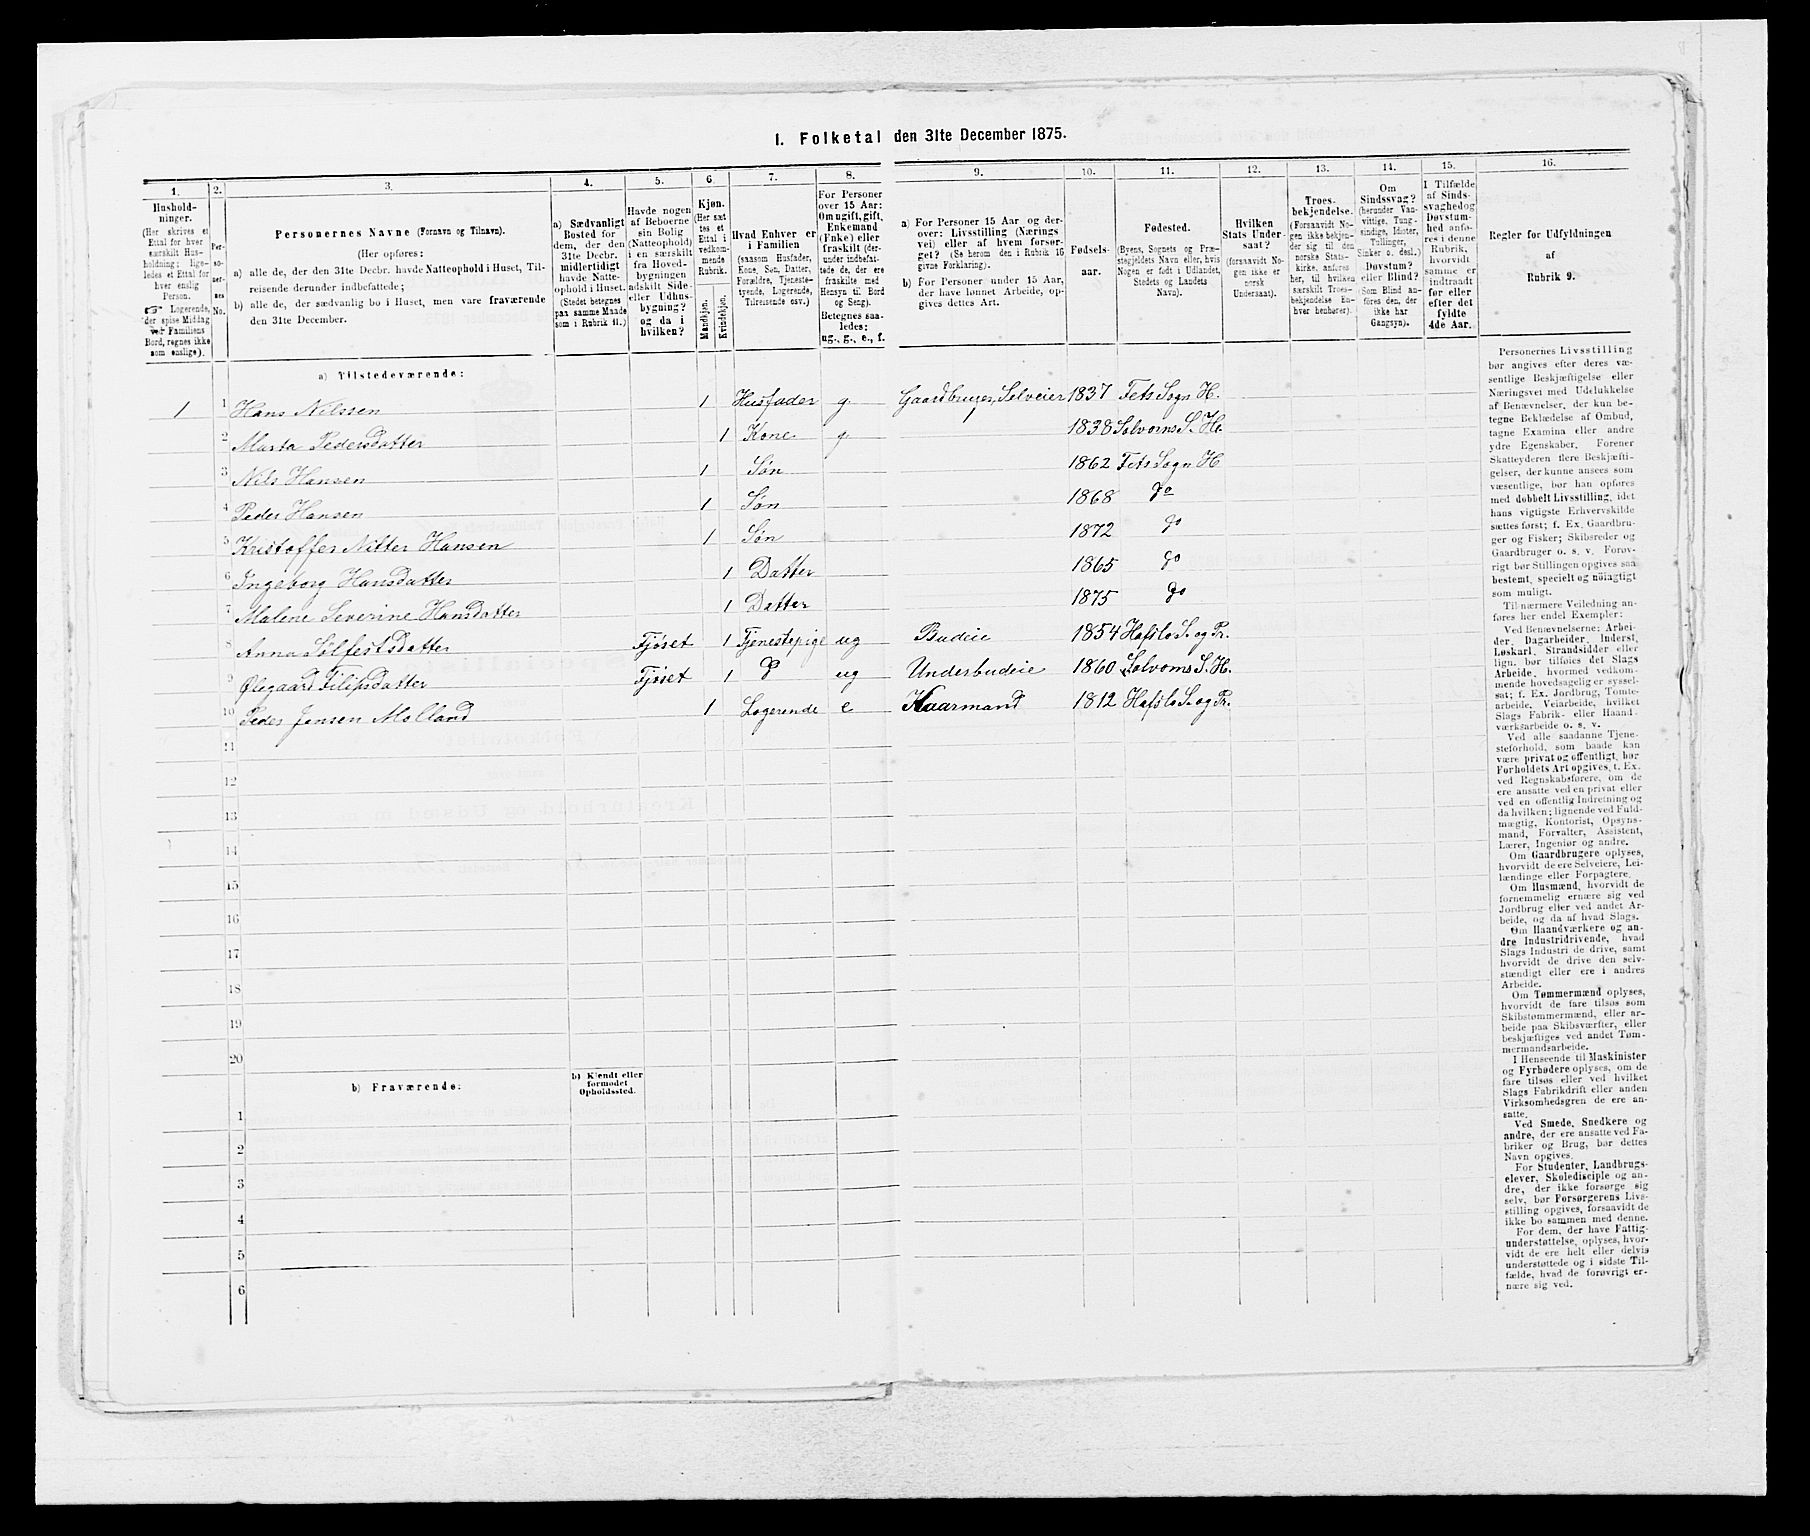 I. Folketal den 31te December 1875.
1. 2. 3. 4. 5. 6. 7. 8. 9. 10. 11. 12. 13. 14. 15. 16.
Husholdninger. (Her skrives et Ettal for hver særskilt Husholdning; ligeledes et Ettal for hver enslig Person. Logerende, der spise Middag ved Familiens Bord, regnes ikke som enslige).
Personernes No.
Personernes Navne (Fornavn og Tilnavn).
(Her opføres:
a) alle de, der den 31te Decbr. havde Natteophold i Huset, Tilreisende derunder indbefattede;
b) alle de, der sædvanlig bo i Huset, men vare fraværende den 31te December.
a) Sædvanligt Bosted for dem, der den 31te Decbr. midlertidigt havde Natteophold i Huset. (Stedet betegnes paa samme Maade som i Rubrik 11.)
Havde nogen af Beboerne sin Bolig (Natteophold) i en særskilt fra Hovedbygningen adskilt Side- eller Udhusbygning? og da i hvilken?
Kjøn. (Her sættes et Ettal i vedkommende Rubrik. Mandkjøn. Kvindekjøn.
Hvad Enhver er i Familien (saasom Husfader, Kone, Søn, Datter, Forældre, Tjenestetyende, Logerende, Tilreisende osv.)
For Personer over 15 Aar: Om ugift, gift, Enkemand (Enke) eller fraskilt (derunder indbefattede de, der ere fraskilte med Hensyn til Bord og Seng). Betegnes saaledes; ug., g., e., f.
a) For Personer 15 Aar og derover: Livsstilling (Næringsvei) eller af hvem forsørget? (Se herom den i Rubrik 16 givne Forklaring).
b) For Personer under 15 Aar, der have lønnet Arbeide, opgives dettes Art.
Fødselsaar.
Fødested. (Byens, Sognets og Præstegjeldets Navn eller, hvis Nogen er født i Udlandet, Stedets og Landets Navn).
Hvilken Stats Undersaat? (forsaavidt Nogen ikke er norsk Undersaat).
Troesbekjendelse. (Forsaavidt Nogen ikke bekjender sig til den norske Statskirke, anføres her, til hvilken særskilt Troesbekjendelse Enhver henhører).
Om Sindssvag? (herunder Vanvittige, Tungsindige, Idioter, Tullinger, Sinker o. desl.) Døvstum? eller Blind? (Som Blind anføres den, der ikke har Gangsyn).
I Tilfælde af Sindssvaghed og Døvstumhed anføres i denne Rubrik, hvorvidt samme er indtraadt før eller efter det fyldte 4de Aar.
Regler for Udfyldningen af Rubrik 9.
a) Tilstedeværende:
1 1 Hans Nilssen 1 Husfader g. Gaardbruger, Selveier 1837 Fets Sogn H.
2 Marta Pedersdatter 1 Kone g. 1838 Solvorns S. H.
3 Nils Hansen 1 Søn 1862 Fets Sogn H
4 Peder Hansen 1 Søn 1868 do
5 Kristoffer Nitter Hansen 1 Søn 1872 do
6 Ingeborg Hansdatter 1 Datter 1865 do
7 Malene Severine Hansdatter 1 Datter 1875 do
8 Anna Solfestsdatter Fjøset 1 Tjenestepige ug Budeie 1854 Hafslo S. og Pr.
9 Ølegaard Filipsdatter Fjøset 1 do ug Underbudeie 1860 Solvorns S. H.
10 Peder Jensen Molland 1 Logerende e Kaarmand 1812 Hafslo S. og Pr.
11
12
13
14
15
16
17
18
19
20
b) Fraværende:
b) Kjendt eller formodet Opholdssted.
1
2
3
4
5
6
Personernes Livsstilling
bør angives efter deres væ-
sentlige Beskjæftigelse eller
Næringsvei med Udelukkelse
af Benævnelser, der kun be-
tegne Beklædelse af Ombud,
tagne Examina eller andre
ydre Egenskaber. Forener
Skatteyderen flere Beskjæfti-
gelser, der kunne ansees som
væsentlige, bør han opføres
med dobbelt Livsstilling, idet
hans vigtigste Erhvervskilde
sættes først; f. Ex. Gaardbru-
ger og Fisker; Skibsreder og
Gaardbruger o. s. v. Forøv-
rigt bør Stillingen opgives saa
bestemt, specielt og nöiagtigt
som muligt.
Til nærmere Veiledning an-
føres her endel Exempler:
Ved Benævnelserne: Arbei-
der, Dagarbeider, Inderst,
Løskarl, Strandsidder eller
lign. bør tilføies det Slags
Arbeide, hvormed vedkom-
mende hovedsagelig er syssel-
sat; f. Ex. Jordbrug, Tomte-
arbeide, Veiarbeide, hvilket
Slags Fabrik- eller Haand-
værksarbeide o. s. v.
Ved alle saadanne Tjene-
steforhold, som baade kan
være privat og offentligt, bør
Forholdets Art opgives, t. Ex.
ved Regnskabsførere, om de
ere ansatte ved en privat eller
ved en offentlig Indretning og
da hvilken; lignende ved Fuld-
mægtig, Kontorist, Opsyns-
mand, Forvalter, Assistent,
Lærer, Ingeniør og andre.
Om Gaardbrugere oplyses,
hvorvidt de ere Selveiere, Lei-
lændinge eller Forpagtere.
Om Husmænd, hvorvidt de
fornemmelig ernære sig ved
Jordbrug eller ved andet Ar-
beide, og da af hvad Slags.
Om Haandværkere og an-
dre Industridrivende, hvad
Slags Industri de drive, samt
hvorvidt de drive den selv-
stændigt eller ere i andres
Arbeide.
Om Tømmermænd oplyses,
hvorvidt de fare tilsøs som
Skibstømmermænd, eller ar-
beide paa Skibsværfter, eller
beskjæftiges ved andet Tøm-
mermandsarbeide.
I Henseende til Maskinister
og Fyrbødere oplyses, om de
fare tilsøs eller ved hvilket
Slags Fabrikdrift eller anden
Virksomhedsgren de ere an-
satte.
Ved Smede, Snedkere og
andre, der ere ansatte ved Fa-
briker og Brug, bør dettes
Navn opgives.
For Studenter, Landbrugs-
elever, Skoledisciple og an-
dre, der ikke forsørge sig
selv, bør Forsørgerens Livs-
stilling opgives, forsaavidt de
ikke bo sammen med denne.
For dem, der have Fattig-
understøttelse, oplyses, hvor-
vidt de ere helt eller delvis
understøttede og i sidste Til-
fælde, hvad de forøvrigt er-
nære sig ved.